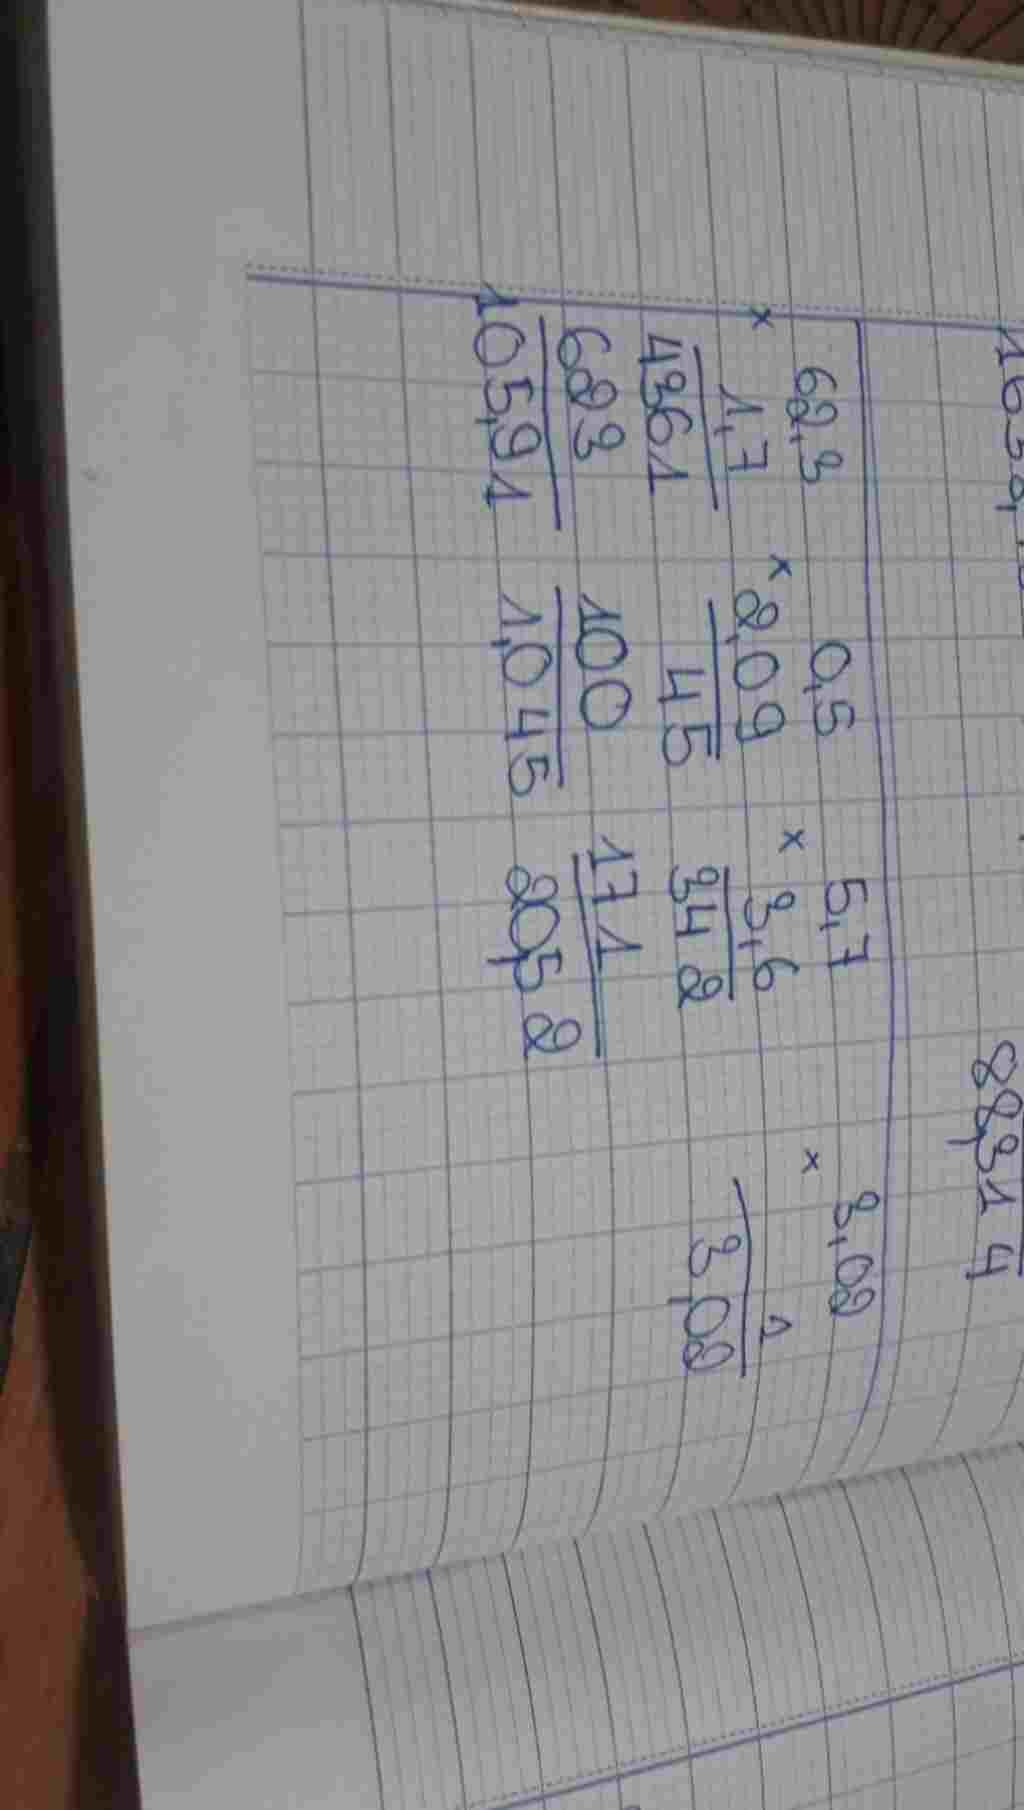 62,3 0,5 5,7 3,02
× 1,7 × 2,09 × 3,6 × 1
4361 45 342 3,02
623 100 171
105,91 1,045 20,52